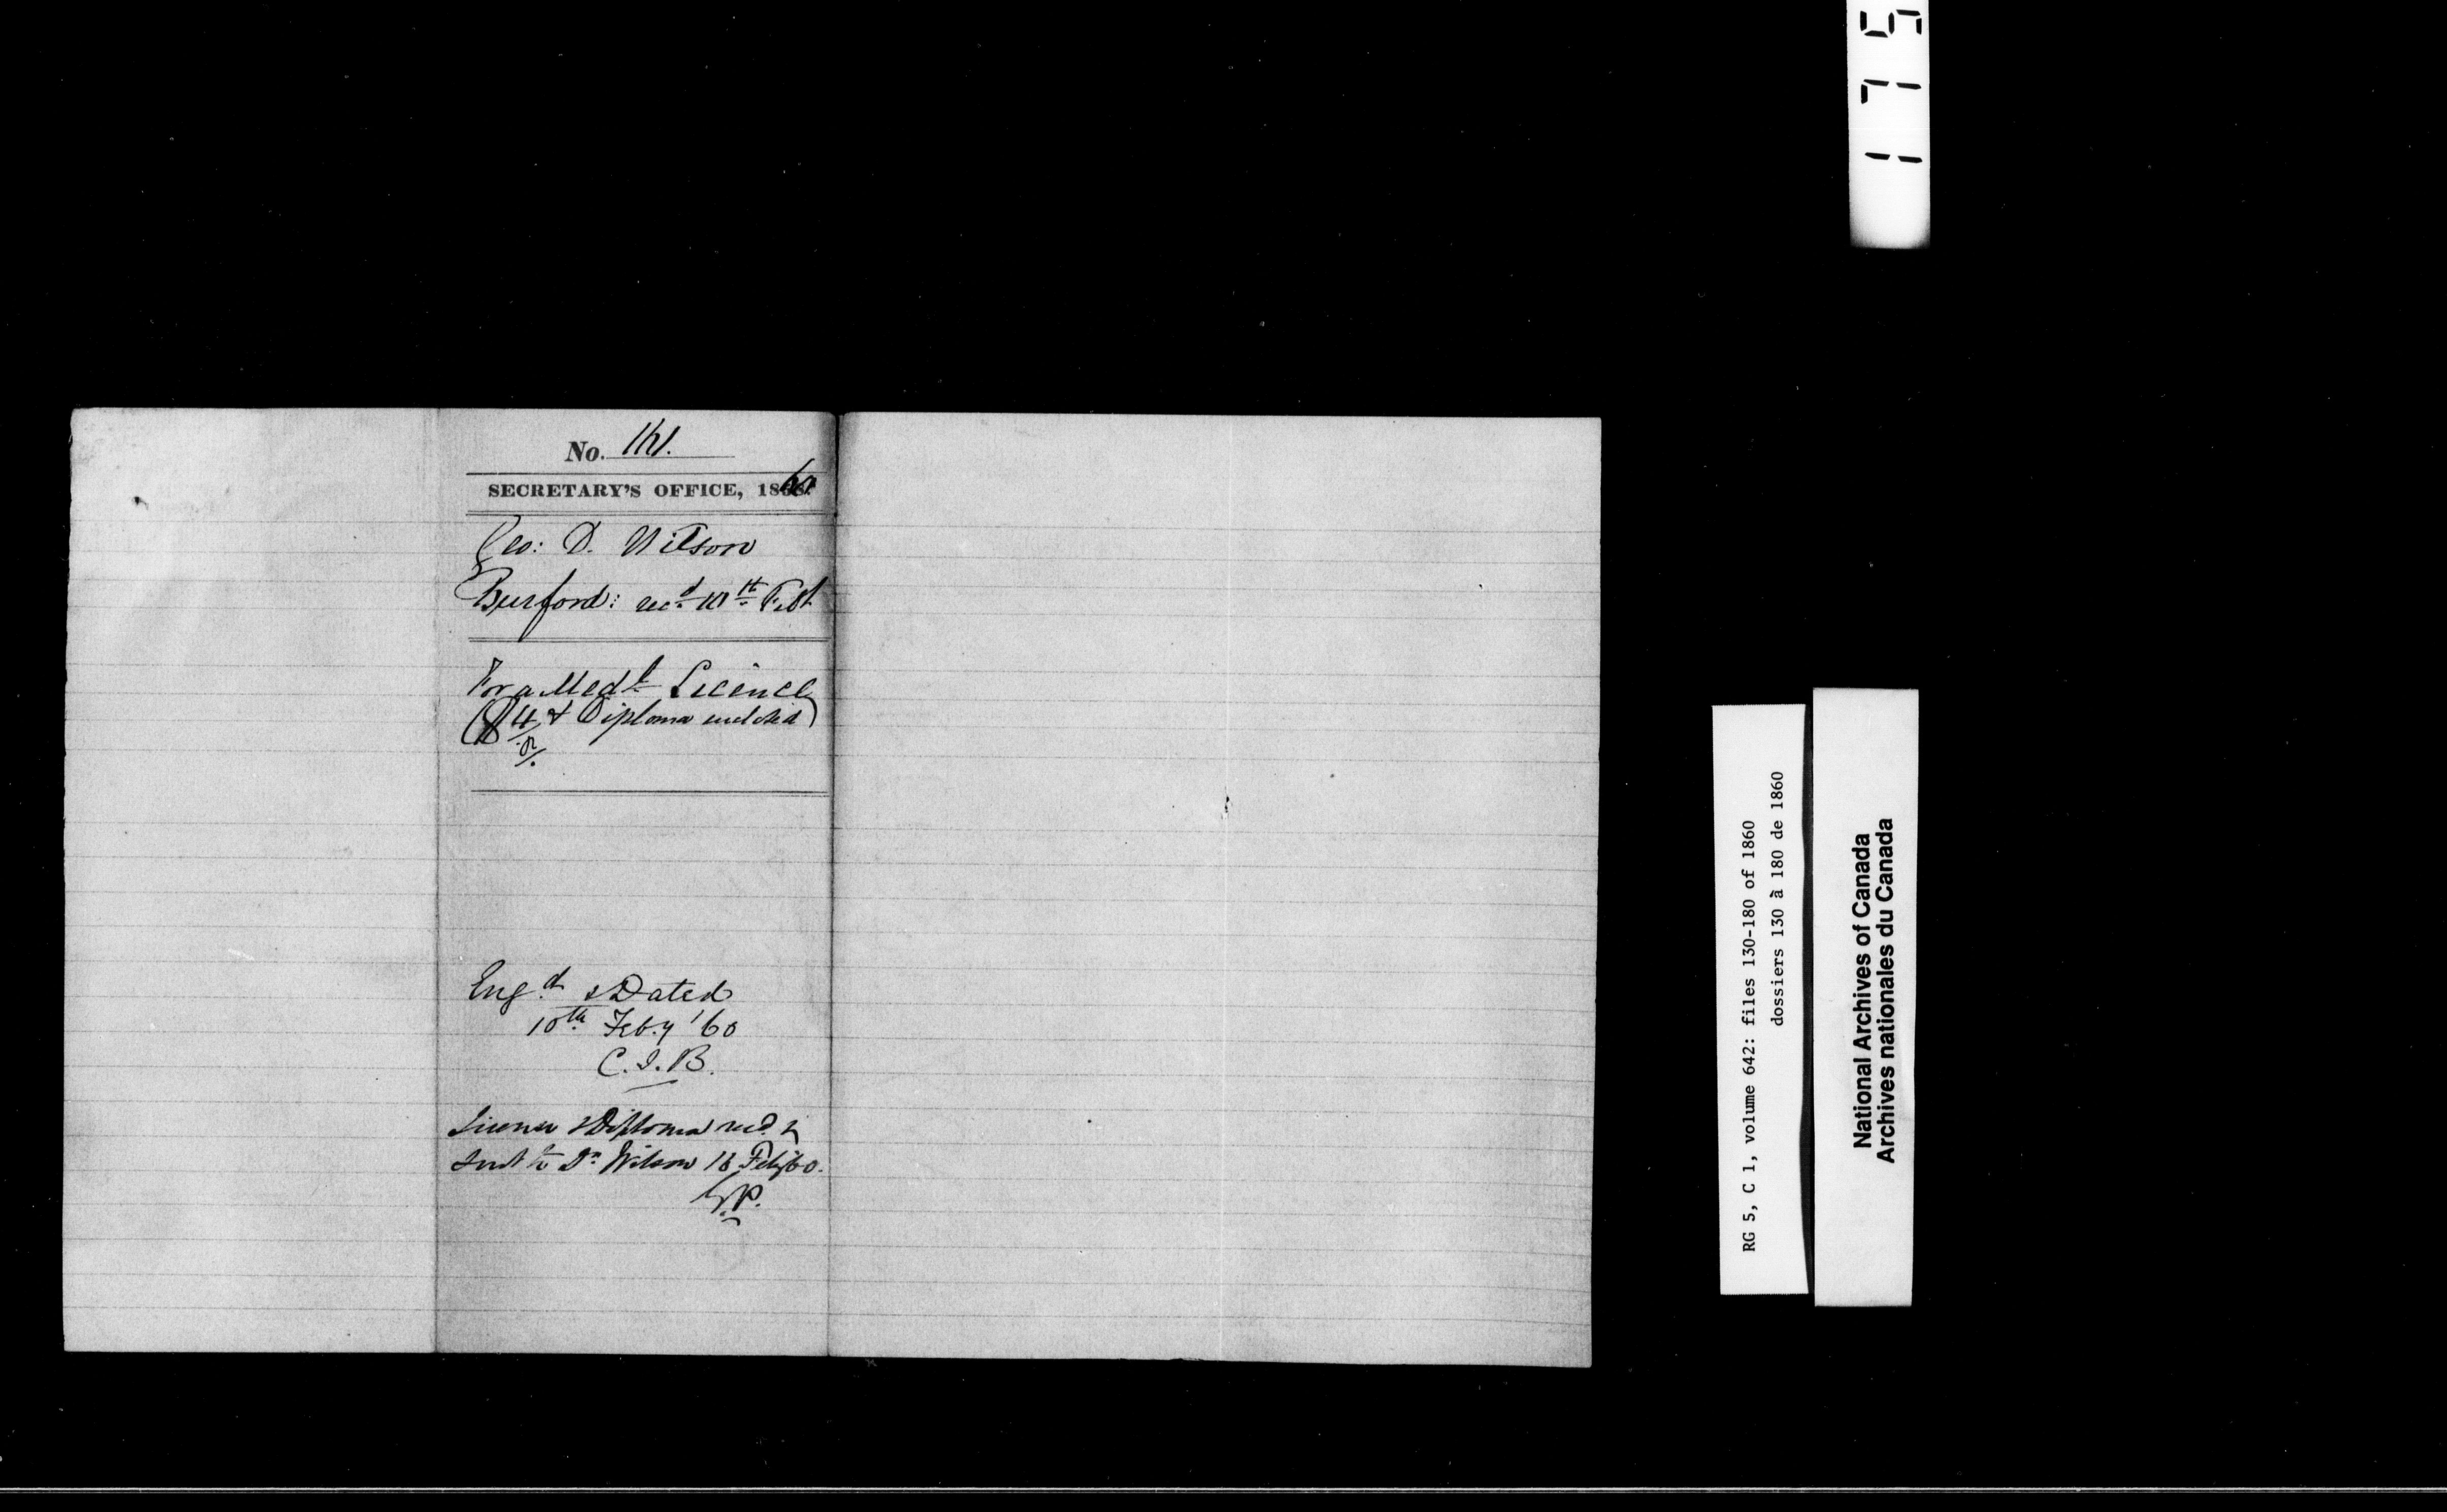 No. 161.
SECRETARY'S OFFICE, 1860
Geo: D. Wilson
Burford: recd 10th Feb
For a Medl Licence
($4 & Diploma enclosed)
Engd & Dated
10th Feby '60
C.J.B.
License & Diploma recd &
sent to Dr Wilson 18 Feby 60.
G.P.
175
RG 5, C 1, volume 642: files 130-180 of 1860
dossiers 130 à 180 de 1860
National Archives of Canada
Archives nationales du Canada